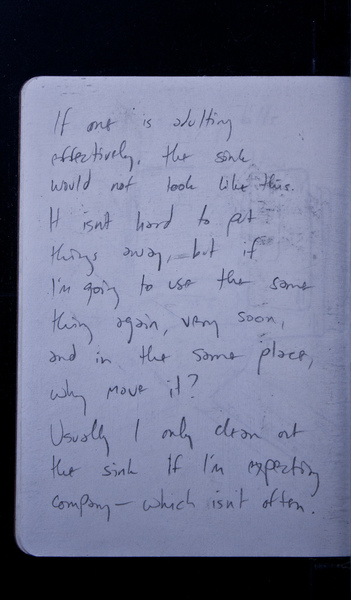 If one is adulting
effectively, the sink
would not look like this.
It isn't hard to put
things away, but if
I'm going to use the same
thing again, very soon,
and in the same place,
why move it?
Usually I only clean out
the sink if I'm expecting
company — which isn't often.